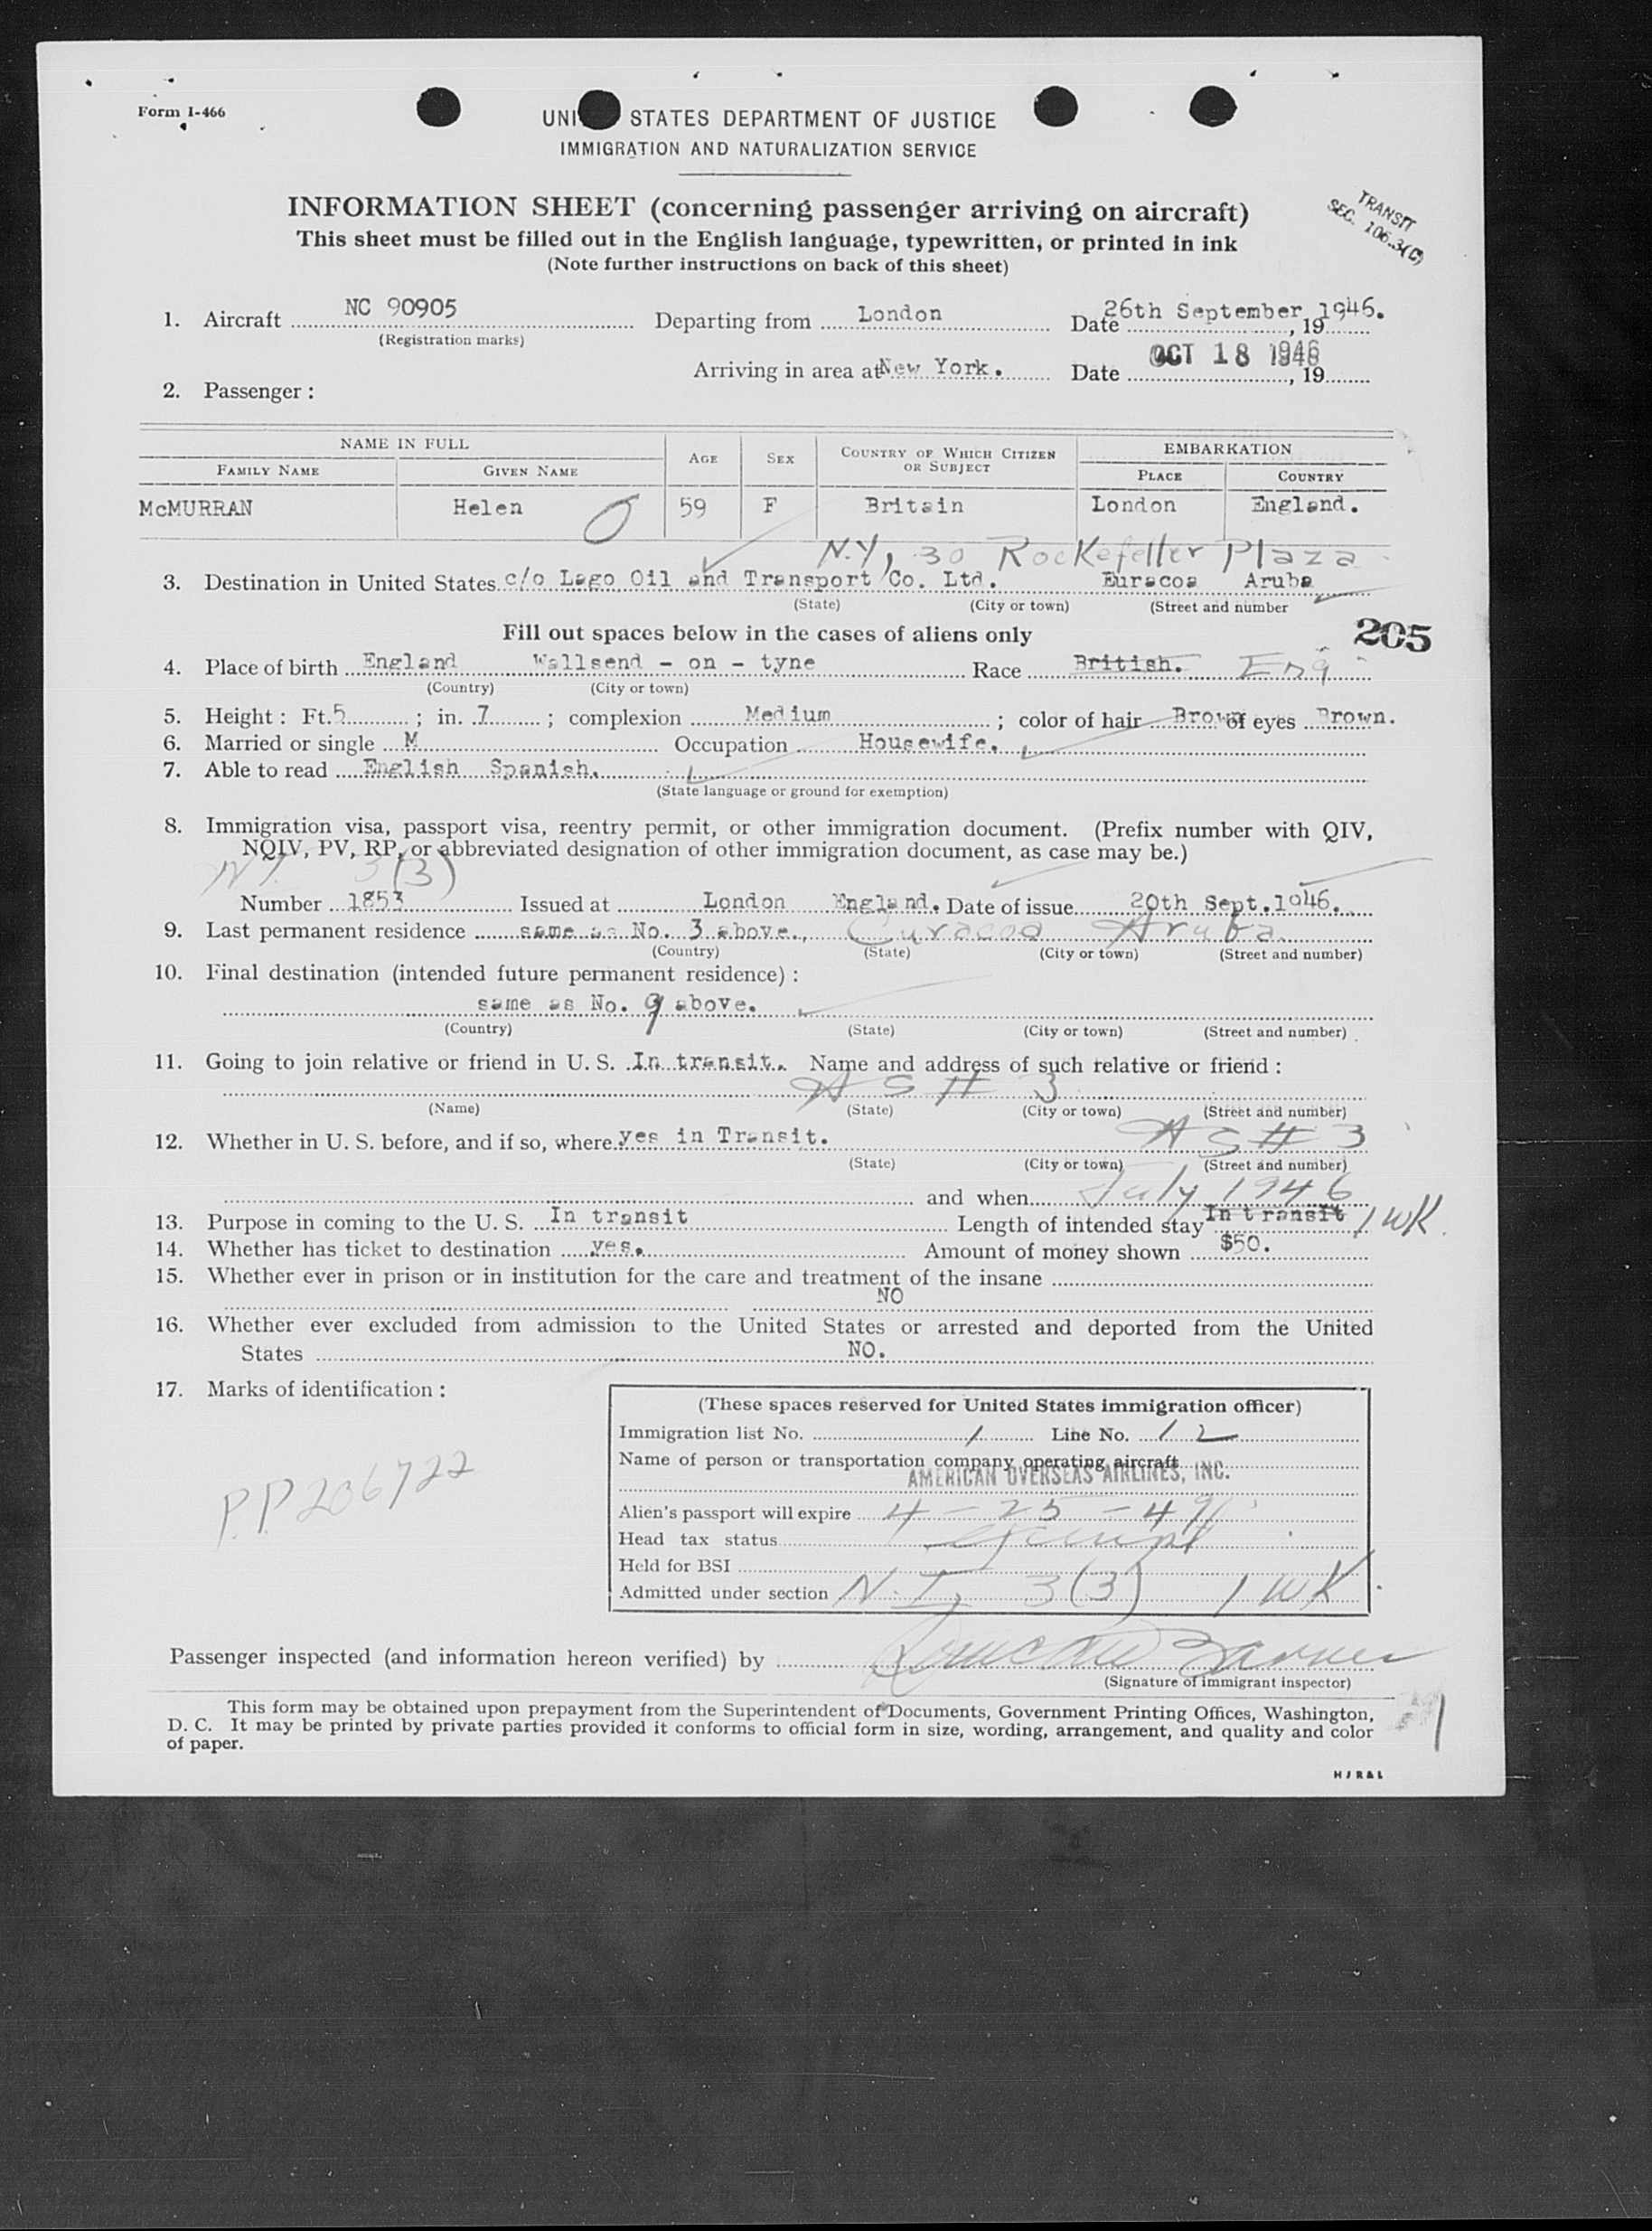 Form I-466
UNI STATES DEPARTMENT OF JUSTICE
IMMIGRATION AND NATURALIZATION SERVICE
INFORMATION SHEET (concerning passenger arriving on aircraft)
This sheet must be filled out in the English language, typewritten, or printed in ink
(Note further instructions on back of this sheet)
TRANSIT
SEC. 106.3(C)
1. Aircraft NC 90905 Departing from London Date 26th September, 1946.
(Registration marks)
Arriving in area at New York. Date OCT 18 1946, 19
2. Passenger :
NAME IN FULL AGE SEX COUNTRY OF WHICH CITIZEN OR SUBJECT EMBARKATION
FAMILY NAME GIVEN NAME PLACE COUNTRY
McMURRAN Helen 59 F Britain London England.
N.Y, 30 Rockefeller Plaza
3. Destination in United States c/o Lago Oil and Transport Co. Ltd. Euracoa Aruba
(State) (City or town) (Street and number
Fill out spaces below in the cases of aliens only
205
4. Place of birth England Wallsend - on - tyne Race British. Eng
(Country) (City or town)
5. Height : Ft. 5 ; in. 7 ; complexion Medium ; color of hair Brown of eyes Brown.
6. Married or single M Occupation Housewife.
7. Able to read English Spanish.
(State language or ground for exemption)
8. Immigration visa, passport visa, reentry permit, or other immigration document. (Prefix number with QIV,
NQIV, PV, RP, or abbreviated designation of other immigration document, as case may be.)
N I 3(3)
Number 1853 Issued at London England. Date of issue 20th Sept.1946.
9. Last permanent residence same as No. 3 above., Curacoa Aruba
(Country) (State) (City or town) (Street and number)
10. Final destination (intended future permanent residence) :
same as No. 9 above.
(Country) (State) (City or town) (Street and number)
11. Going to join relative or friend in U. S. In transit. Name and address of such relative or friend :
AS # 3
(Name) (State) (City or town) (Street and number)
12. Whether in U. S. before, and if so, where yes in Transit. AS # 3
(State) (City or town) (Street and number)
and when July 1946
13. Purpose in coming to the U. S. In transit Length of intended stay In transit 1 WK.
14. Whether has ticket to destination yes. Amount of money shown $50.
15. Whether ever in prison or in institution for the care and treatment of the insane
NO
16. Whether ever excluded from admission to the United States or arrested and deported from the United
States NO.
17. Marks of identification :
P.P. 206722
(These spaces reserved for United States immigration officer)
Immigration list No. 1 Line No. 12
Name of person or transportation company operating aircraft
AMERICAN OVERSEAS AIRLINES, INC.
Alien's passport will expire 4 - 25 - 49
Head tax status exempt
Held for BSI
Admitted under section N.I, 3(3) 1 WK.
Passenger inspected (and information hereon verified) by
(Signature of immigrant inspector)
This form may be obtained upon prepayment from the Superintendent of Documents, Government Printing Offices, Washington,
D. C. It may be printed by private parties provided it conforms to official form in size, wording, arrangement, and quality and color
of paper.
H J R & L